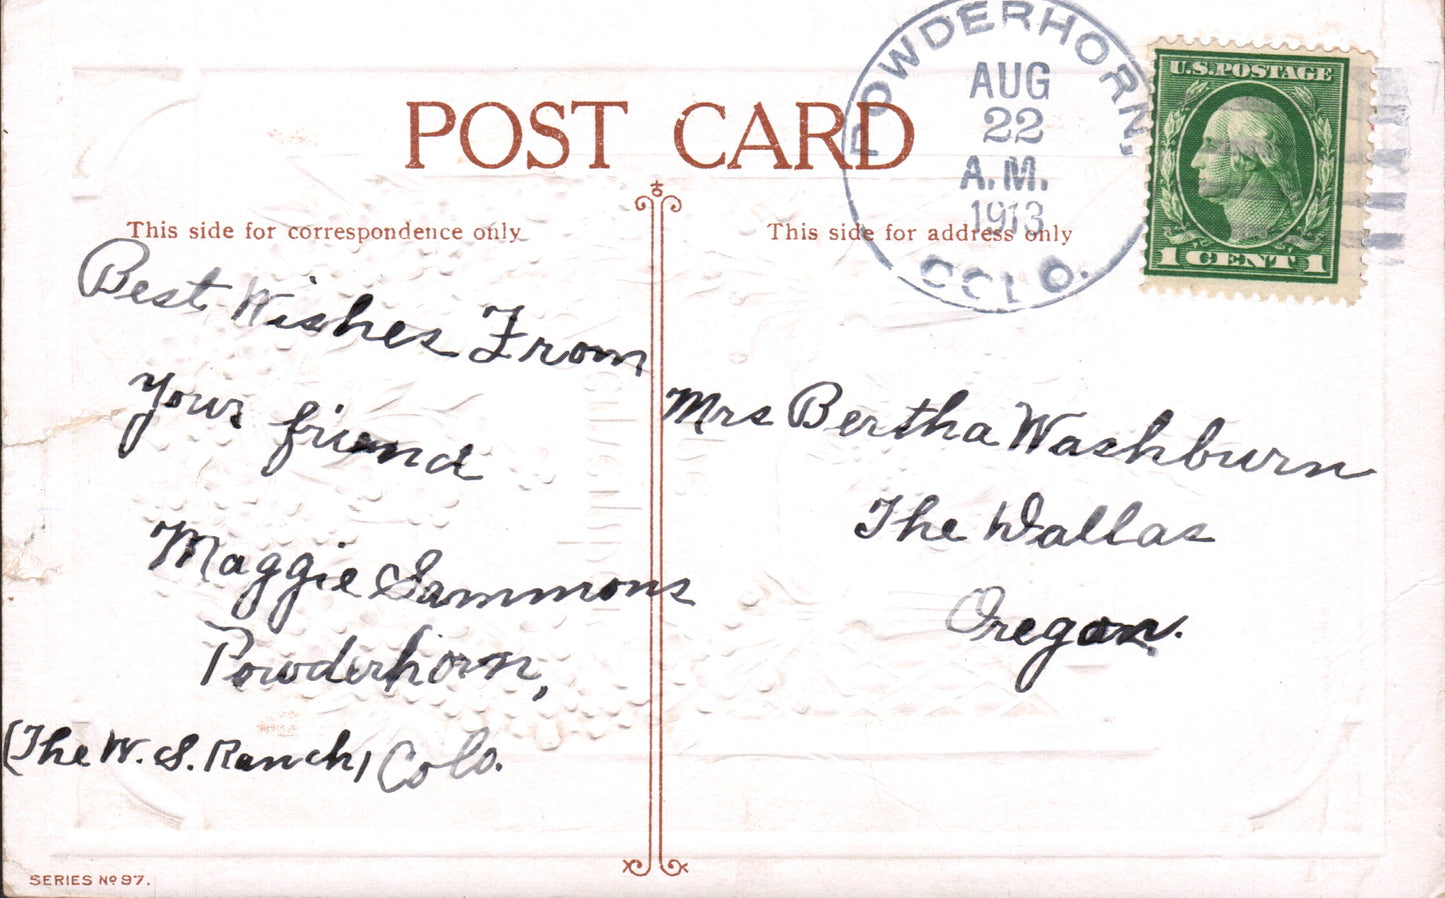 POWDERHORN,
AUG
22
A.M.
1913
COLO.
U.S. POSTAGE
1 CENT 1
POST CARD
This side for correspondence only
This side for address only
Best Wishes From
your friend
Maggie Sammons
Powderhorn,
(The W. S. Ranch) Colo.
Mrs Bertha Washburn
The Dallas
Oregon.
SERIES No 97.